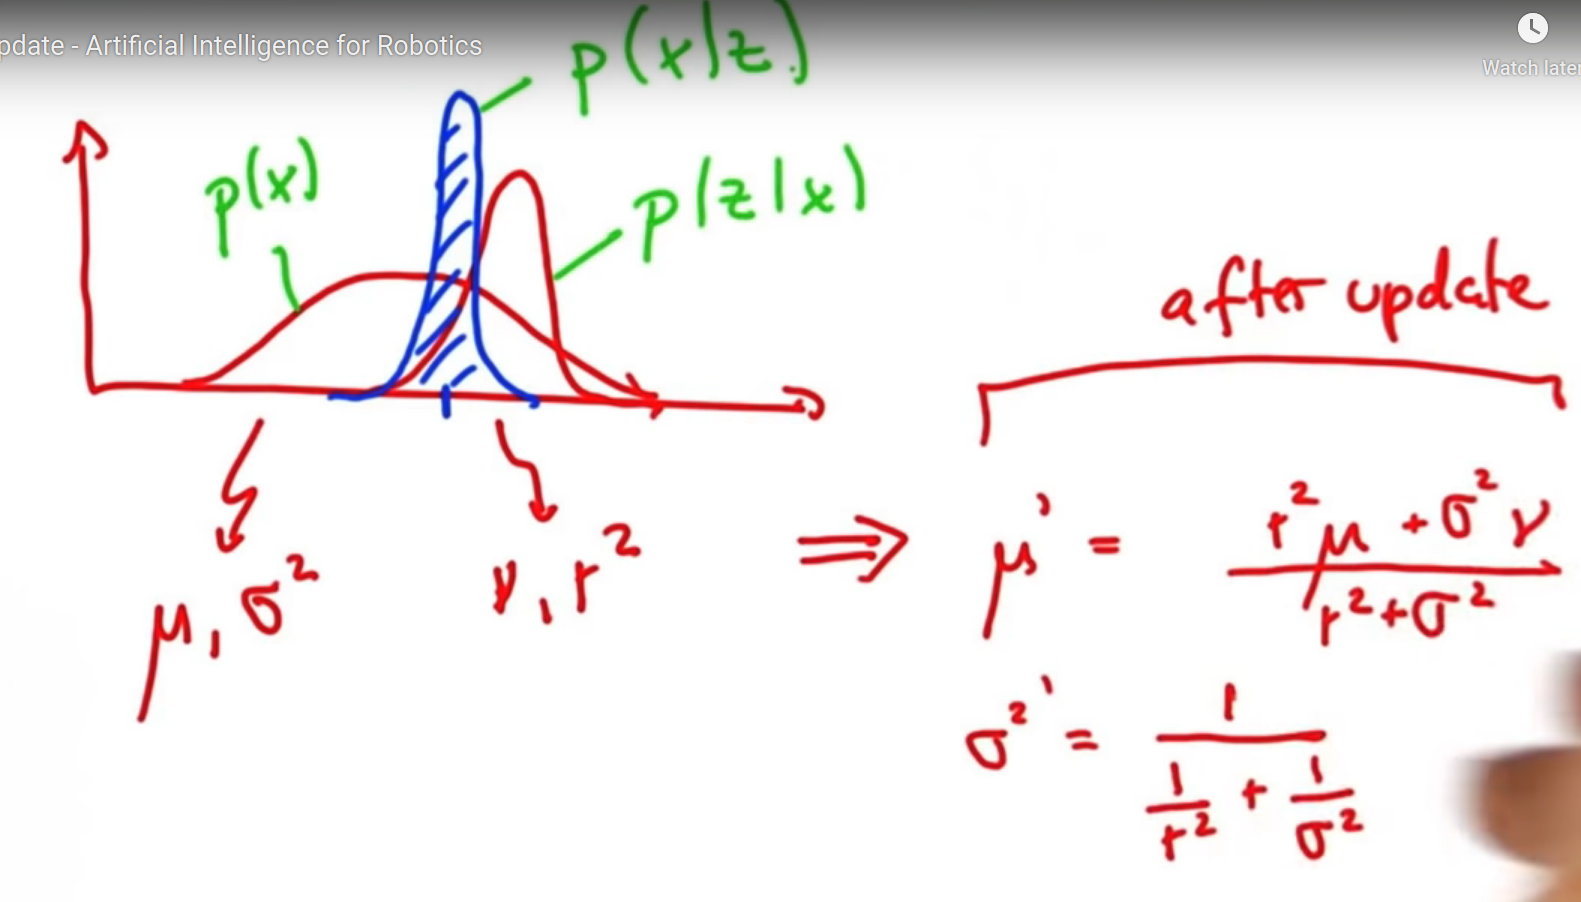 pdate - Artificial Intelligence for Robotics
Watch later
p(x|z)
p(x)
p(z|x)
after update
μ, σ²
ν, r²
⇒ μ' = (r²μ + σ²ν) / (r² + σ²)
σ²' = 1 / (1/r² + 1/σ²)